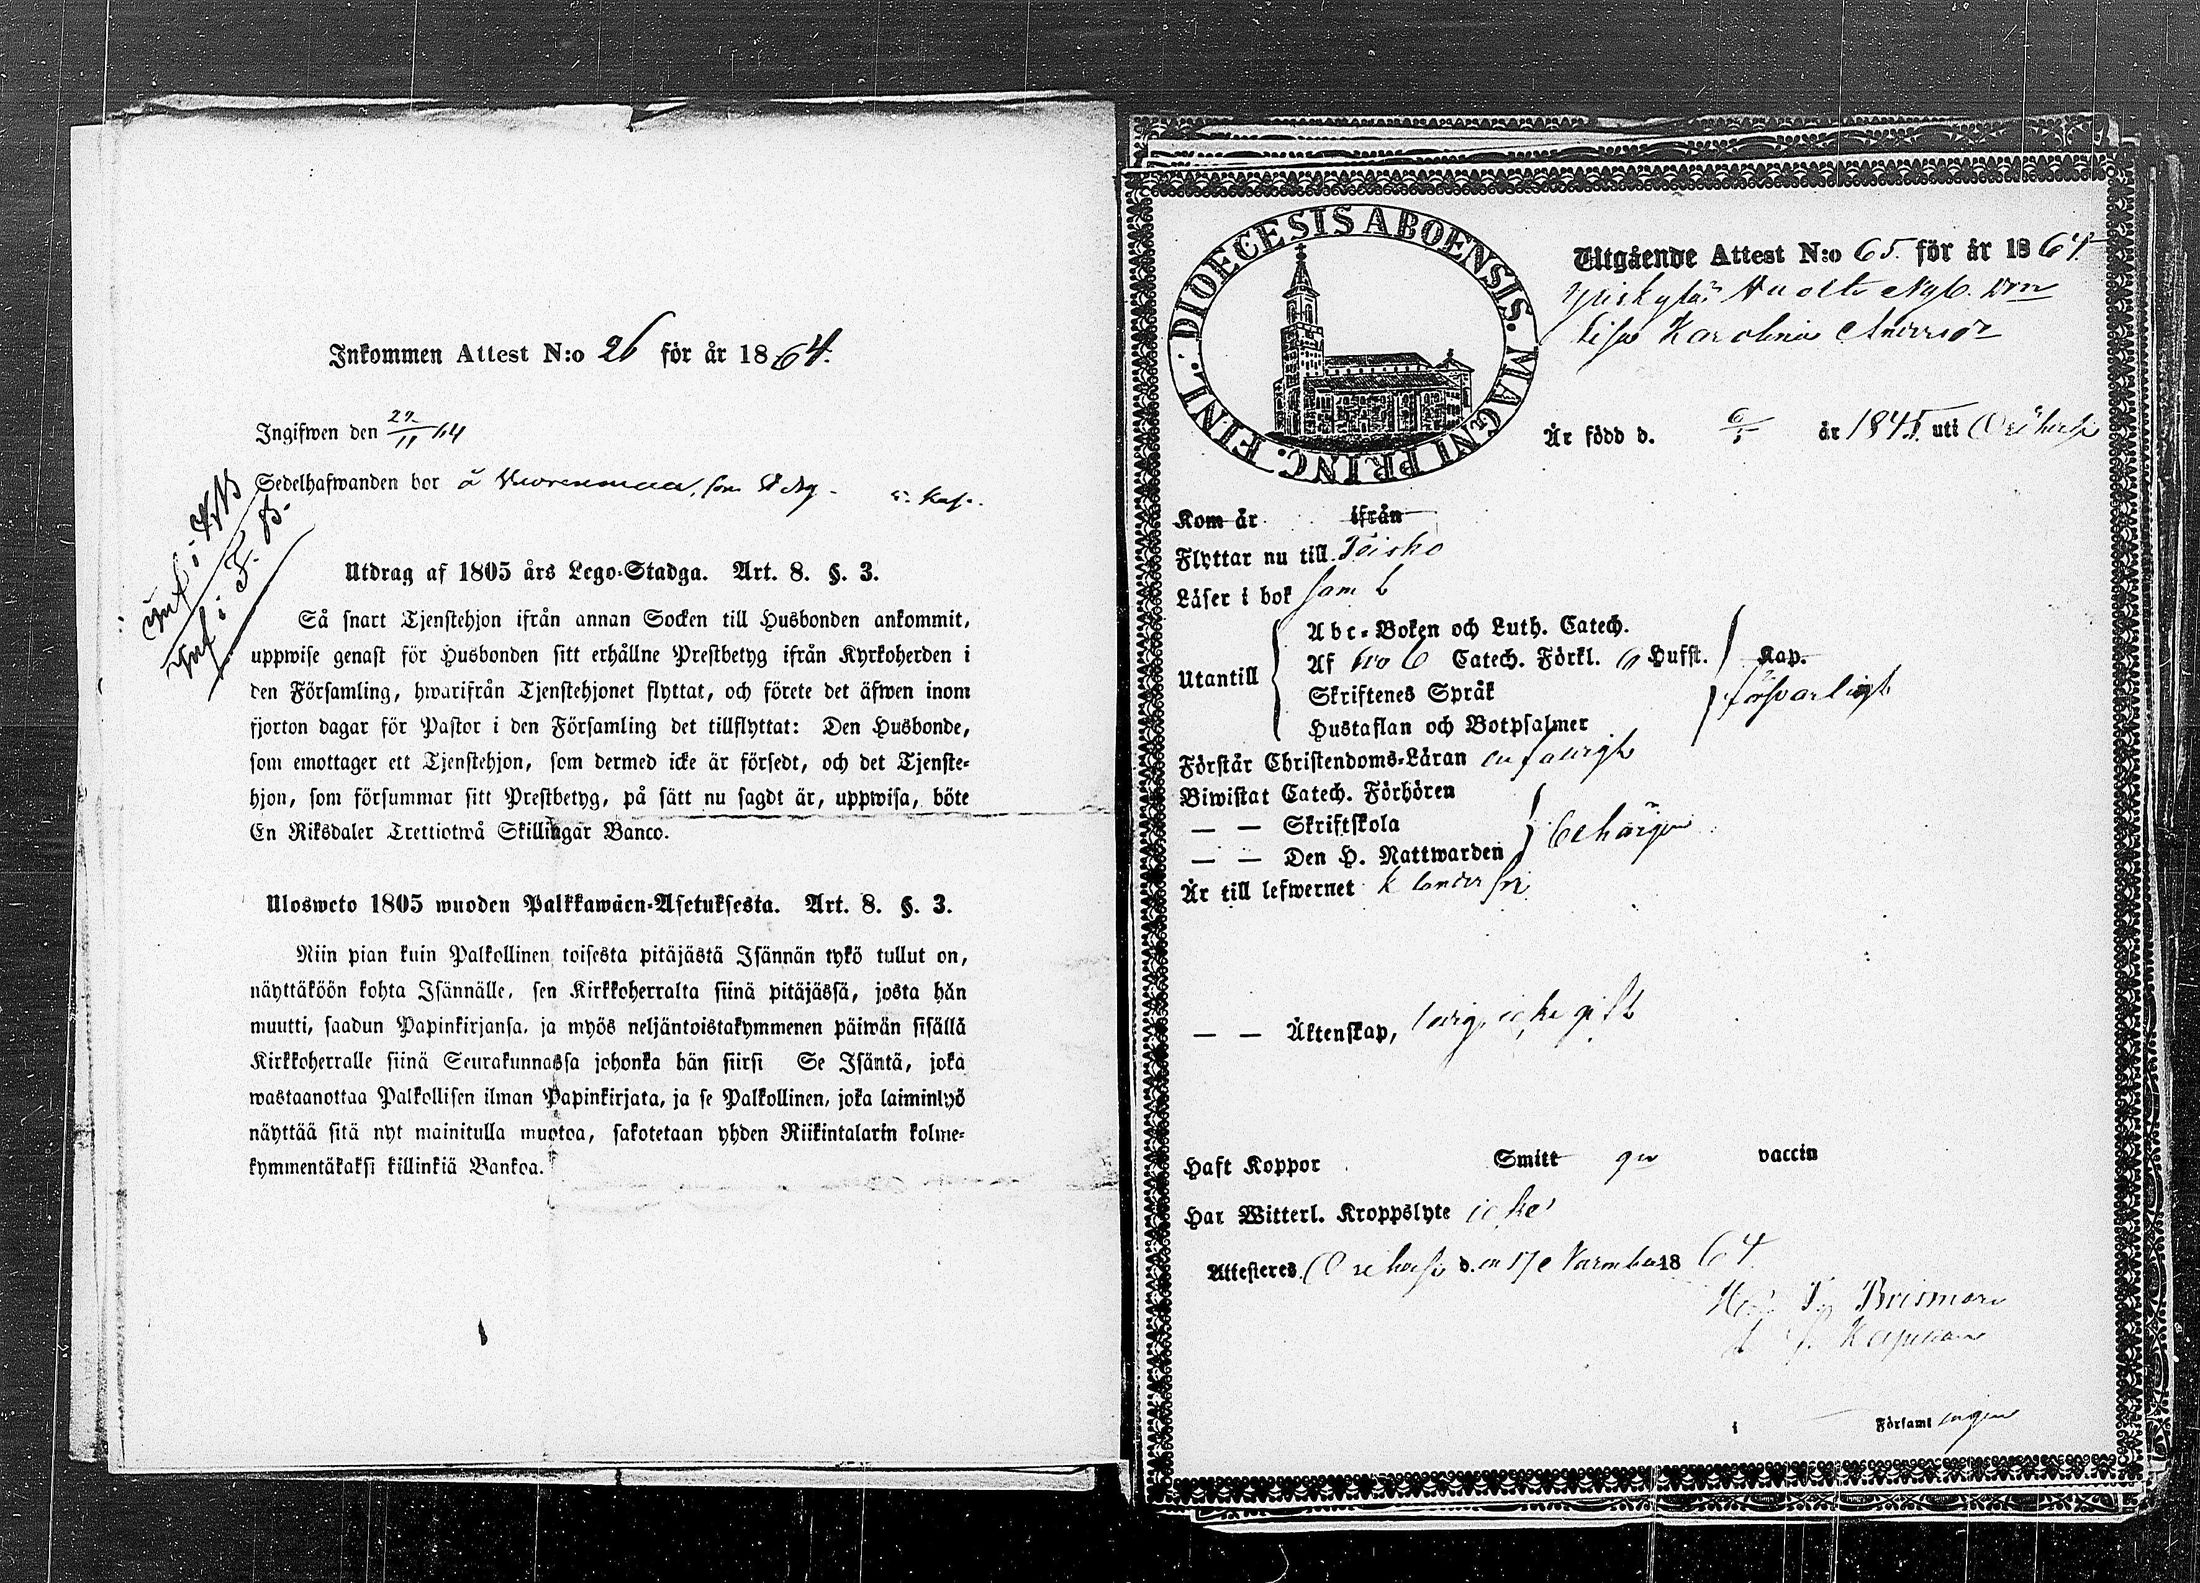 Inkommen Attest N:o 26 för år 1864.
Ingifwen den 22/11 64
Sedelhafwanden bor å
Inf i KB
Inf i F. B.
Utdrag af 1805 års Lego-Stadga. Art. 8. §. 3.
Så snart Tjenstehjon ifrån annan Socken till Husbonden ankommit,
uppwise genast för Husbonden sitt erhållne Prestbetyg ifrån Kyrkoherden i
den Församling, hwarifrån Tjenstehjonet flyttat, och förete det äfwen inom
fjorton dagar för Pastor i den Församling det tillflyttat: Den Husbonde,
som emottager ett Tjenstehjon, som dermed icke är försedt, och det Tjenste-
hjon, som försummar sitt Prestbetyg, på sätt nu sagdt är, uppwisa, böte
En Riksdaler Trettiotwå Skillingar Banco.
Ulosweto 1805 wuoden Palkkawäen-Asetuksesta. Art. 8. §. 3.
Niin pian kuin Palkollinen toisesta pitäjästä Isännän tykö tullut on,
näyttäköön kohta Isännälle, sen Kirkkoherralta siinä pitäjässä, josta hän
muutti, saadun Papinkirjansa, ja myös neljäntoistakymmenen päiwän sisällä
Kirkkoherralle siinä Seurakunnassa johonka hän siirsi Se Isäntä, joka
wastaanottaa Palkollisen ilman Papinkirjata, ja se Palkollinen, joka laiminlyö
näyttää sitä nyt mainitulla muotoa, sakotetaan yhden Riikintalarin kolme-
kymmentäkaksi killinkiä Bankoa.
DIOECESIS ABOENSIS. MAGNI PRINC. FINL:
Utgående Attest N:o 65. för år 1864.
Lisa Karolina
Är född d. 6/5 år 1845. uti Orihesi
Kom år ifrån
Flyttar nu till Teisko
Läser i bok
Utantill
Abc-Boken och Luth. Catech.
Af Catech. Förkl. Hufst.
Kap.
Skriftenes Språk
försvarligt
Hustaflan och Botpsalmer
Förstår Christendoms-Läran enfaldigt
Biwistat Catech. Förhören
— — Skriftskola
behörigen
— — Den H. Nattwarden
Är till lefwernet klanderfri
— — Äktenskap, ledig, icke gift
Haft Koppor Smitt gm vaccin
Har Witterl. Kroppslyte icke
Attesteres Orihesi d. en 17 November 1864.
Brismari
Kapellan
i Församl ingen